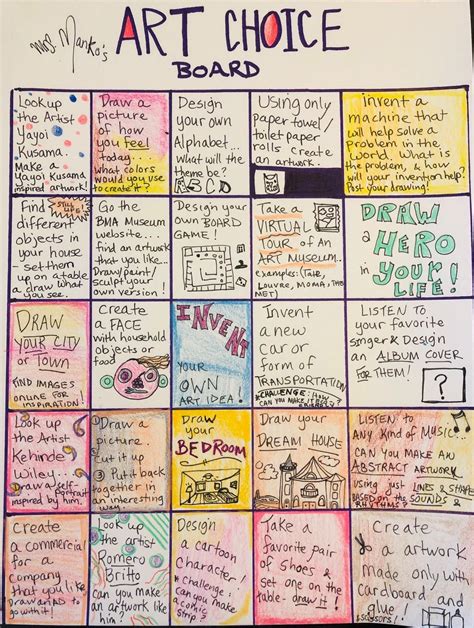 Mrs. Manko's
ART CHOICE
BOARD
Look up
the Artist
Yayoi
Kusama.
Make a
Yayoi Kusama
inspired artwork!
Draw a
picture
of how
you feel
today...
what colors
would you use
to create it?
Design
your own
Alphabet...
What will the
theme be?
A B C D
Using only
paper towel/
toilet paper
rolls create
an artwork.
invent a
machine that
will help solve a
problem in the
World. What's
the problem, & how
will your invention help?
Post your drawing!
Find
STILL LIFE
different
objects in
your house
- set them
up on a table
& draw what
you see.
Go the
BMA Museum
website...
find an artwork
that you like...
Draw/paint/
sculpt your
own version!
Design your
own BOARD
GAME!
Take a
VIRTUAL
TOUR of AN
ART MUSEUM.
examples: (Tate,
Louvre, MoMA, the
MET)
DRAW
a
HERO
in YOUR
LIFE!
DRAW
YOUR CITY
or TOWN
FIND IMAGES
ONLINE FOR
INSPIRATION!
Create
a FACE
with household
objects or
food
INVENT
YOUR
OWN
ART IDEA!
Invent
a new
car or
form of
TRANSPORTATION
CHALLENGE: HOW
CAN YOU MAKE IT
LISTEN TO
your favorite
singer & Design
an ALBUM COVER
FOR THEM!
?
Look up
the Artist
Kehinde
Wiley...
Draw a self-
portrait
inspired by him.
① Draw a
picture
② Cut it up
③ Put it back
together in
an interesting
way.
Draw
your
BEDROOM
Draw
your
DREAM HOUSE
LISTEN TO
ANY Kind of MUSIC...
CAN YOU MAKE AN
ABSTRACT artwork
using just LINES & SHAPES
BASED ON the SOUNDS &
RHYTHMS?
Create
a commercial
for a
company
that you like
Draw an AD to
go with it!
Look up
the artist
Romero
Britto
Can you make
an artwork like
him?
Design
a cartoon
Character!
* Challenge:
can you make
a comic
strip?
Take a
favorite pair
of shoes &
set one on
the table
- draw it!
Create
a artwork
made only with
Cardboard and
glue!
& scissors!